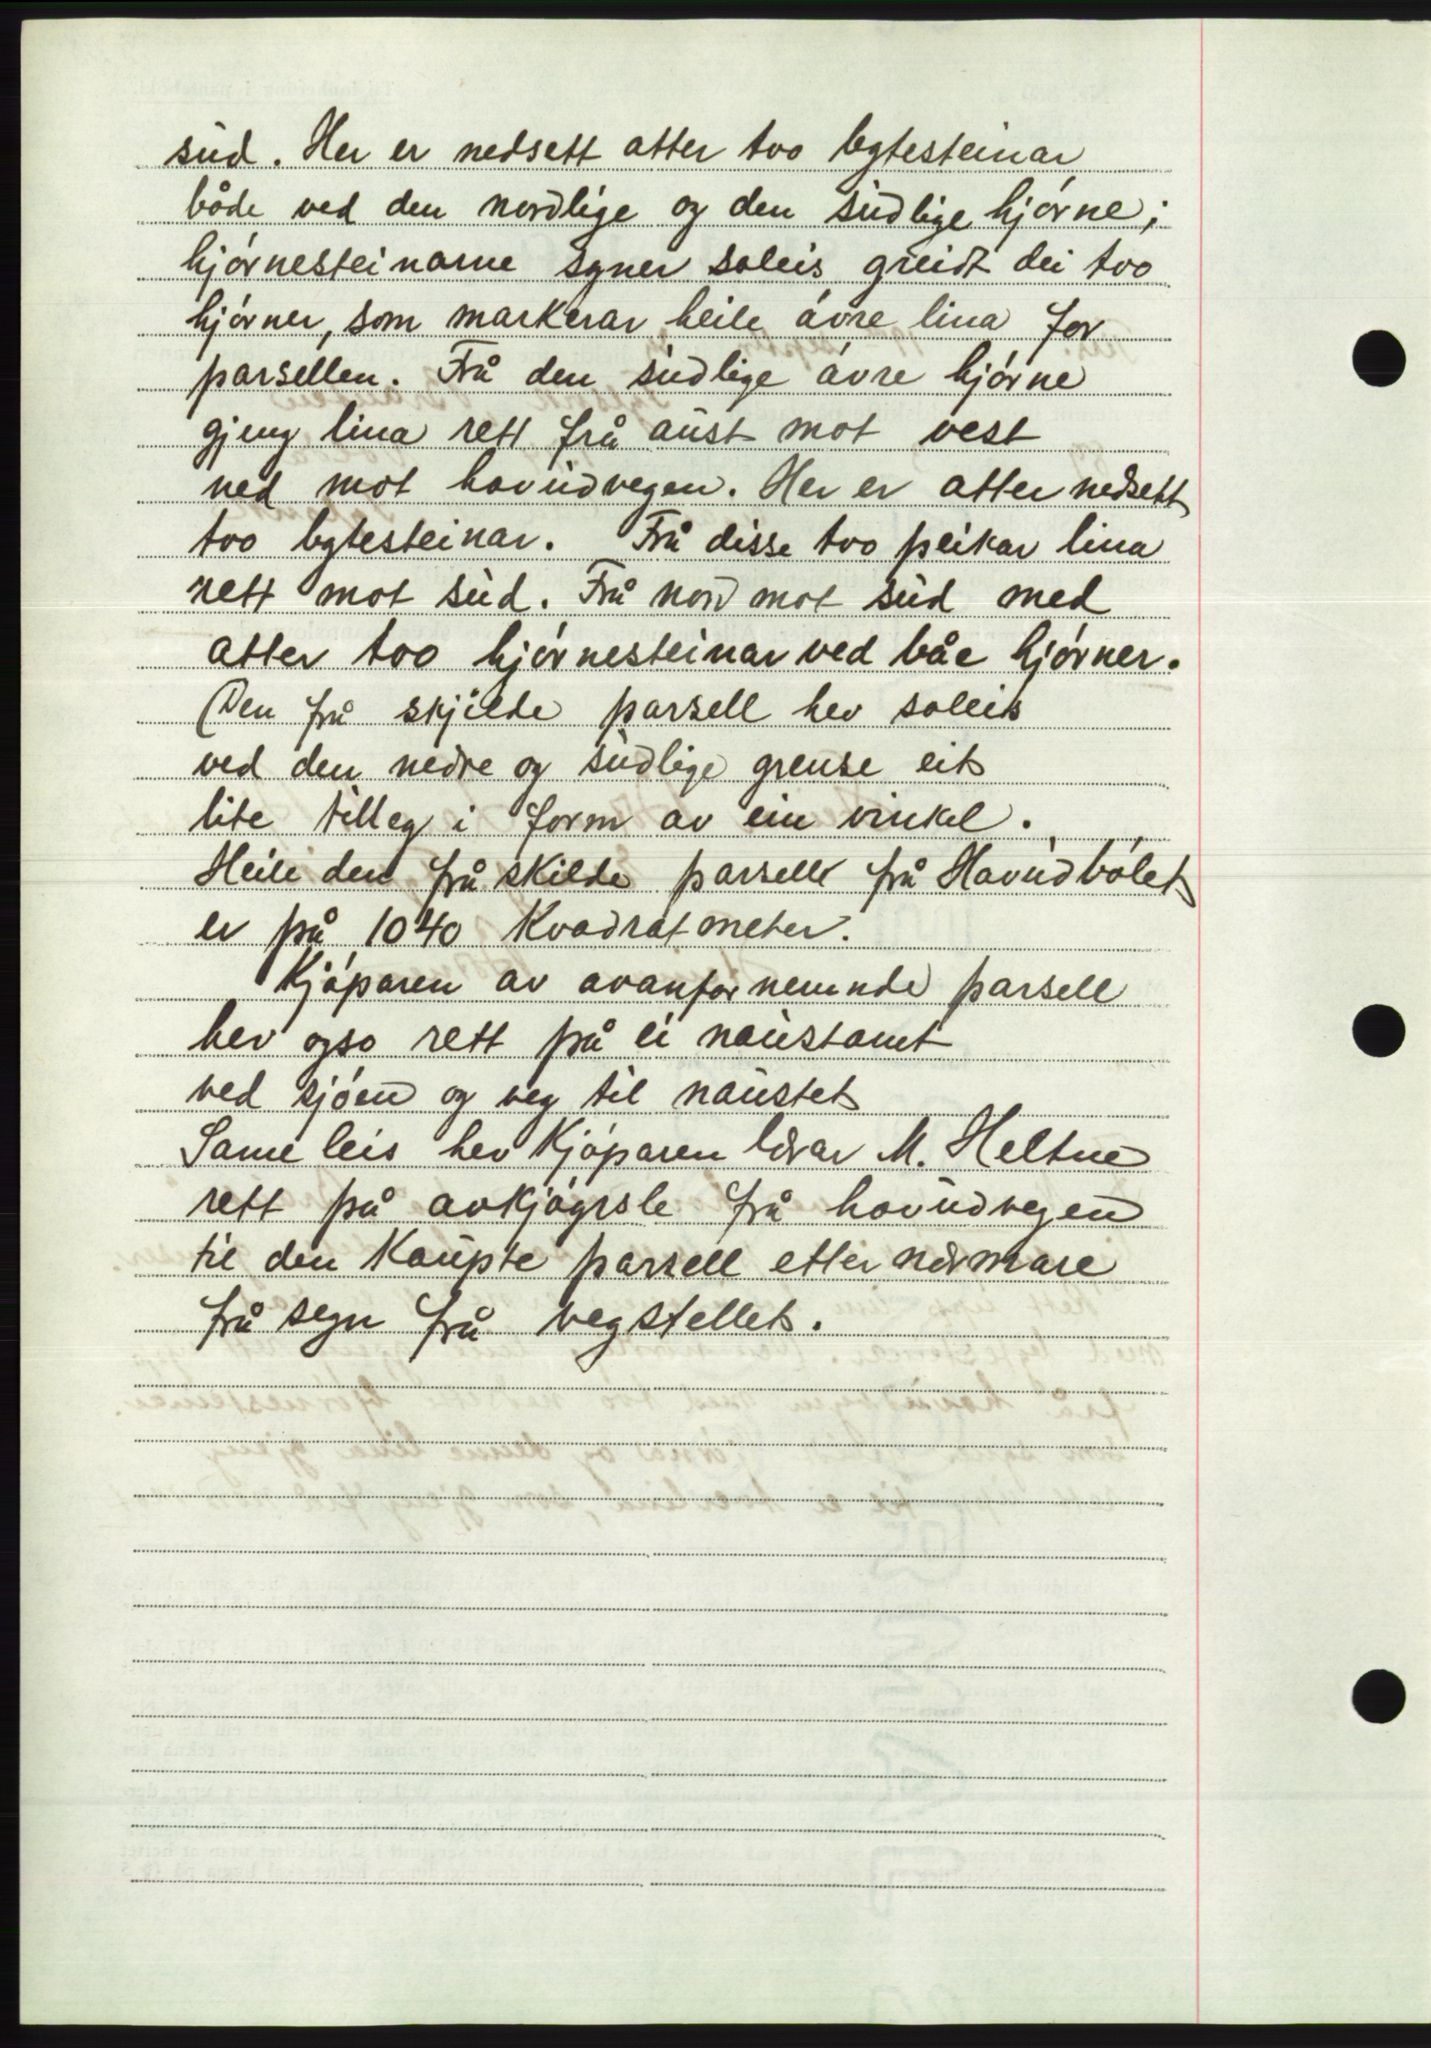 süd. Her er nedsett atter two bytesteinar
både ved den nordlige og den südlige hjórne;
hjórnesteinarne syner soleis greidt dei two
hjórner, som markerar heile óvre lina for
parsellen. Frå den südlige óvre hjórne
gjeng lina rett frå aüst mot vest
ned mot hovüdvegen. Her er atter nedsett
two bytesteinar. Frå disse two peikar lina
rett mot süd. Frå nord mot süd med
atter two hjórnesteinar ved båe hjórner.
Den frå skjilde parsell hev soleis
ved den nedre og südlige grense eit
lite tilleg i form av ein vinkel.
Heile den frå skilde parsell frå Havüdbólet
er på 1040 Kvadratmeter.
Kjóparen av ovanfor nemnde parsell
hev ogso rett på ei naüstomt
ved sjóen og veg til naüstet
Same leis hev Kjóparen Ivar M. Heltne
rett på avkjóyrsle frå hovüdvegen
til den Kaüpte parsell etter nærmare
frå segn frå vegstellet.